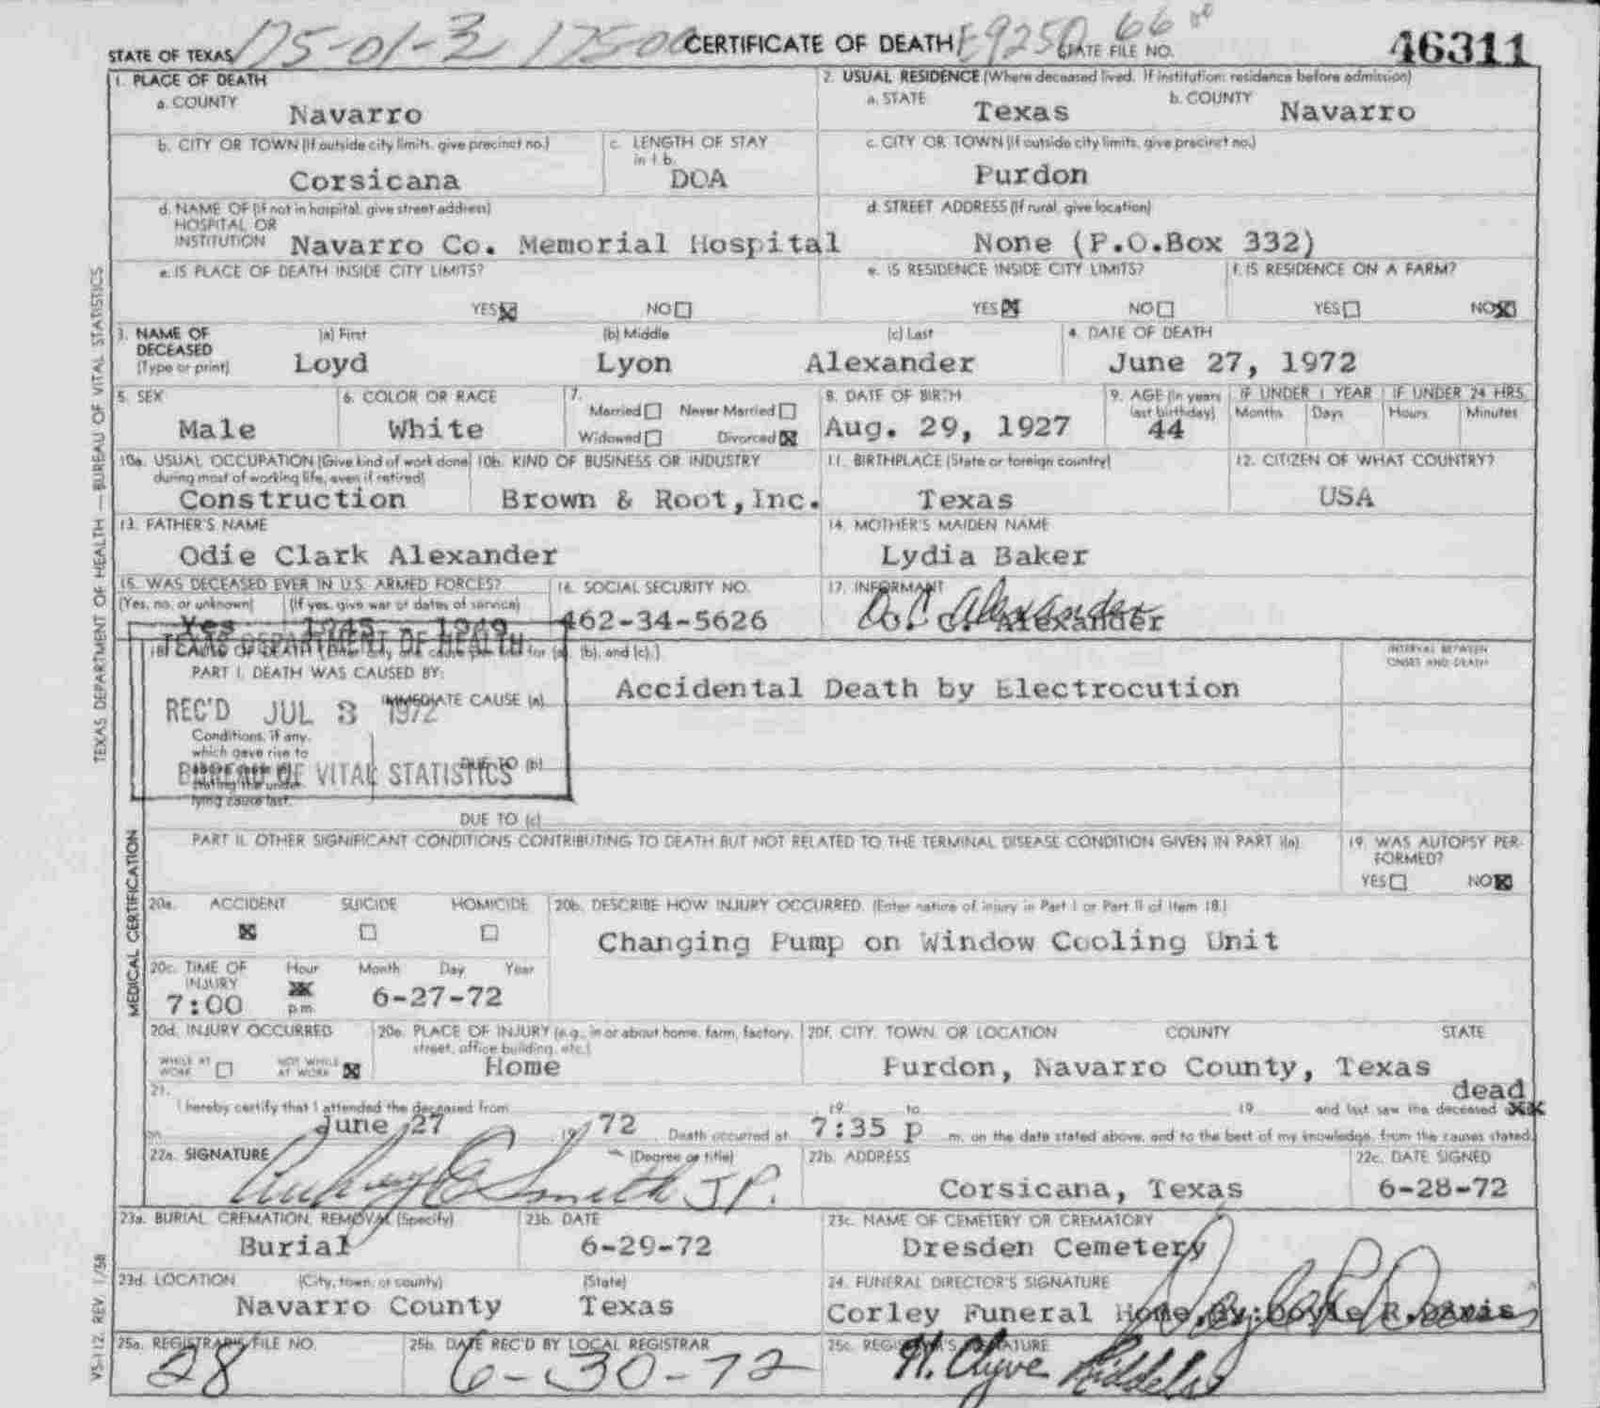 STATE OF TEXAS 175-01-3 CERTIFICATE OF DEATH STATE FILE NO. 66 46311
1. PLACE OF DEATH 2. USUAL RESIDENCE (Where deceased lived. If institution: residence before admission)
a. COUNTY Navarro a. STATE Texas b. COUNTY Navarro
b. CITY OR TOWN (If outside city limits, give precinct no.) c. LENGTH OF STAY in 1 b. c. CITY OR TOWN (If outside city limits, give precinct no.)
Corsicana DOA Purdon
d. NAME OF (If not in hospital, give street address) d. STREET ADDRESS (If rural, give location)
HOSPITAL OR
INSTITUTION Navarro Co. Memorial Hospital None (P.O.Box 332)
e. IS PLACE OF DEATH INSIDE CITY LIMITS? e. IS RESIDENCE INSIDE CITY LIMITS? f. IS RESIDENCE ON A FARM?
YES NO YES NO YES NO
3. NAME OF DECEASED (Type or print) (a) First (b) Middle (c) Last 4. DATE OF DEATH
Loyd Lyon Alexander June 27, 1972
5. SEX 6. COLOR OR RACE 7. Married Never Married Widowed Divorced 8. DATE OF BIRTH 9. AGE (In years last birthday) IF UNDER 1 YEAR IF UNDER 24 HRS.
Months Days Hours Minutes
Male White Aug. 29, 1927 44
10a. USUAL OCCUPATION (Give kind of work done during most of working life, even if retired) 10b. KIND OF BUSINESS OR INDUSTRY 11. BIRTHPLACE (State or foreign country) 12. CITIZEN OF WHAT COUNTRY?
Construction Brown & Root,Inc. Texas USA
13. FATHER'S NAME 14. MOTHER'S MAIDEN NAME
Odie Clark Alexander Lydia Baker
15. WAS DECEASED EVER IN U.S. ARMED FORCES? 16. SOCIAL SECURITY NO. 17. INFORMANT
(Yes, no, or unknown) (If yes, give war or dates of service)
Yes 1945 1949 462-34-5626 O. C. Alexander
O. C. Alexander
TEXAS DEPARTMENT OF HEALTH
REC'D JUL 3 1972
BUREAU OF VITAL STATISTICS
18. CAUSE OF DEATH for (a), (b), and (c).] INTERVAL BETWEEN ONSET AND DEATH
PART I. DEATH WAS CAUSED BY:
IMMEDIATE CAUSE (a) Accidental Death by Electrocution
Conditions, if any, which gave rise to
stating the underlying cause last. DUE TO (b)
DUE TO (c)
PART II. OTHER SIGNIFICANT CONDITIONS CONTRIBUTING TO DEATH BUT NOT RELATED TO THE TERMINAL DISEASE CONDITION GIVEN IN PART I(a) 19. WAS AUTOPSY PERFORMED?
YES NO
20a. ACCIDENT SUICIDE HOMICIDE 20b. DESCRIBE HOW INJURY OCCURRED. (Enter nature of injury in Part I or Part II of Item 18.)
Changing Pump on Window Cooling Unit
20c. TIME OF INJURY Hour Month Day Year
7:00 p.m. 6-27-72
20d. INJURY OCCURRED 20e. PLACE OF INJURY (e.g., in or about home, farm, factory, street, office building, etc.) 20f. CITY, TOWN, OR LOCATION COUNTY STATE
WHILE AT WORK NOT WHILE AT WORK Home Purdon, Navarro County, Texas
21. dead
I hereby certify that I attended the deceased from 19 to 19 and last saw the deceased
June 27 19 72 Death occurred at 7:35 p m. on the date stated above, and to the best of my knowledge, from the causes stated.
22a. SIGNATURE (Degree or title) 22b. ADDRESS 22c. DATE SIGNED
Aubrey E Smith J.P. Corsicana, Texas 6-28-72
23a. BURIAL, CREMATION, REMOVAL (Specify) 23b. DATE 23c. NAME OF CEMETERY OR CREMATORY
Burial 6-29-72 Dresden Cemetery
23d. LOCATION (City, town, or county) (State) 24. FUNERAL DIRECTOR'S SIGNATURE
Navarro County Texas Corley Funeral Home,By:Doyle R.Davis
25a. REGISTRAR'S FILE NO. 25b. DATE REC'D BY LOCAL REGISTRAR 25c. REGISTRAR'S SIGNATURE
28 6-30-72
TEXAS DEPARTMENT OF HEALTH — BUREAU OF VITAL STATISTICS
MEDICAL CERTIFICATION
VS-112 REV. 1/58